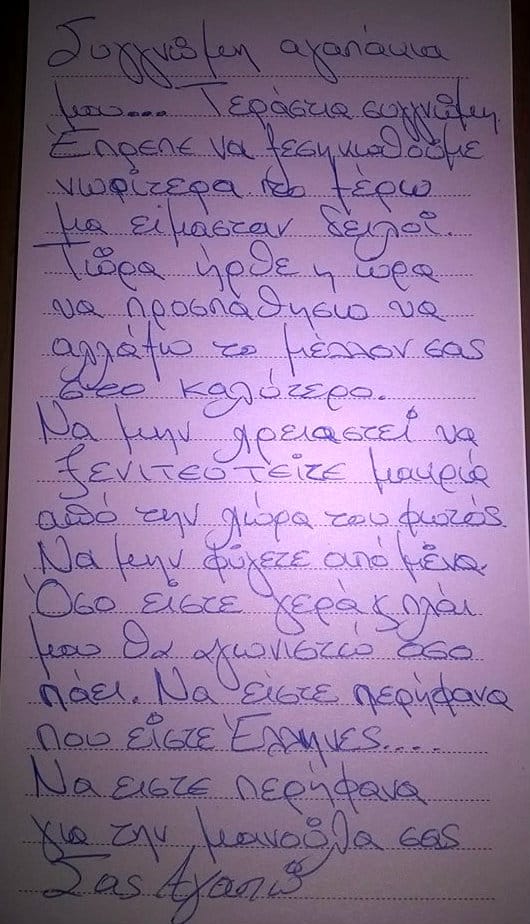 Συγγνώμη αγαπάκια
μου... Τεράστια συγγνώμη.
Έπρεπε να ξεσηκωθούμε
νωρίτερα το ξέρω
μα είμασταν δειλοί.
Τώρα ήρθε η ώρα
να προσπαθήσω να
αλλάξω το μέλλον σας
στο καλύτερο.
Να μην χρειαστεί να
ξενιτευτείτε μακριά
από την χώρα του φωτός
Να μην φύγετε από μένα.
Όσο είστε γερά & πλάι
μου θα αγωνιστώ όσο
πάει. Να είστε περήφανα
που είστε Έλληνες....
Να ειστε περήφανα
για την μανούλα σας
Σας Αγαπώ